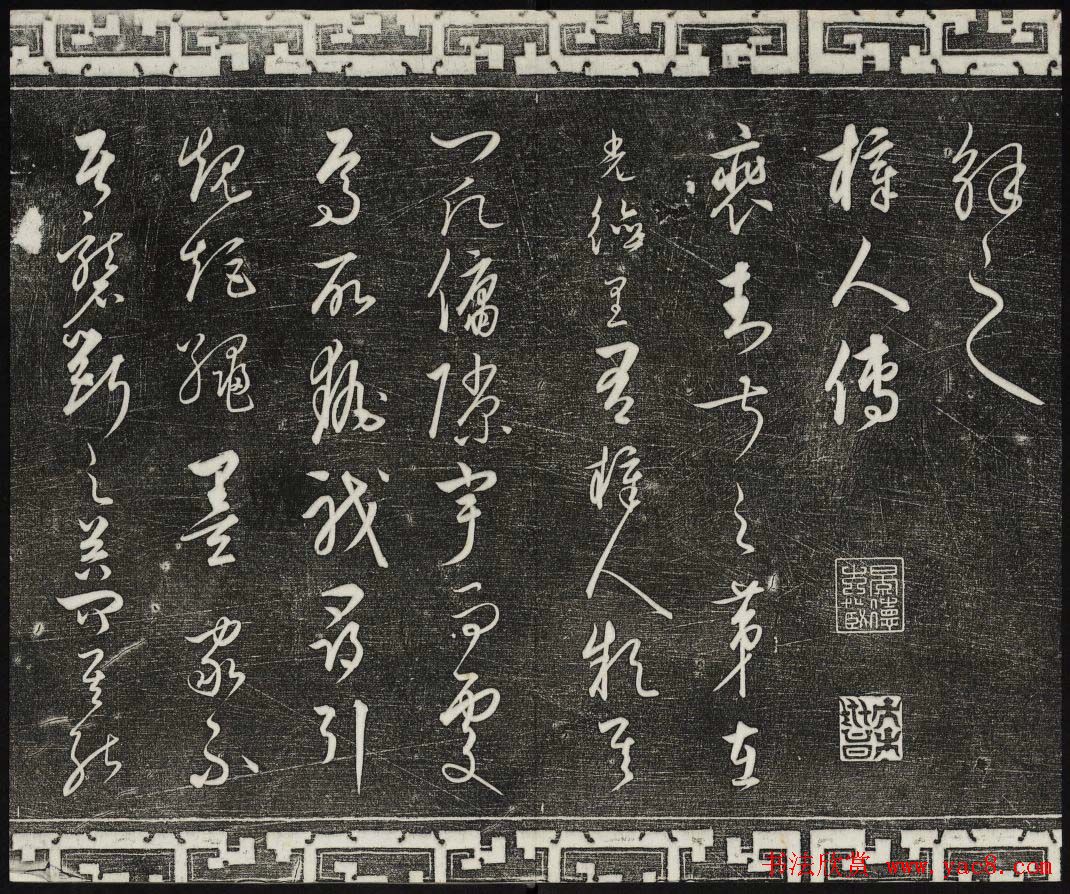 解之
梓人傳
裴封叔之第在
光德里有梓人款其
門願傭隙宇而處
焉所執職尋引
規矩繩墨家不
居礱斲之器問其能
书法欣赏 www.yac8.com